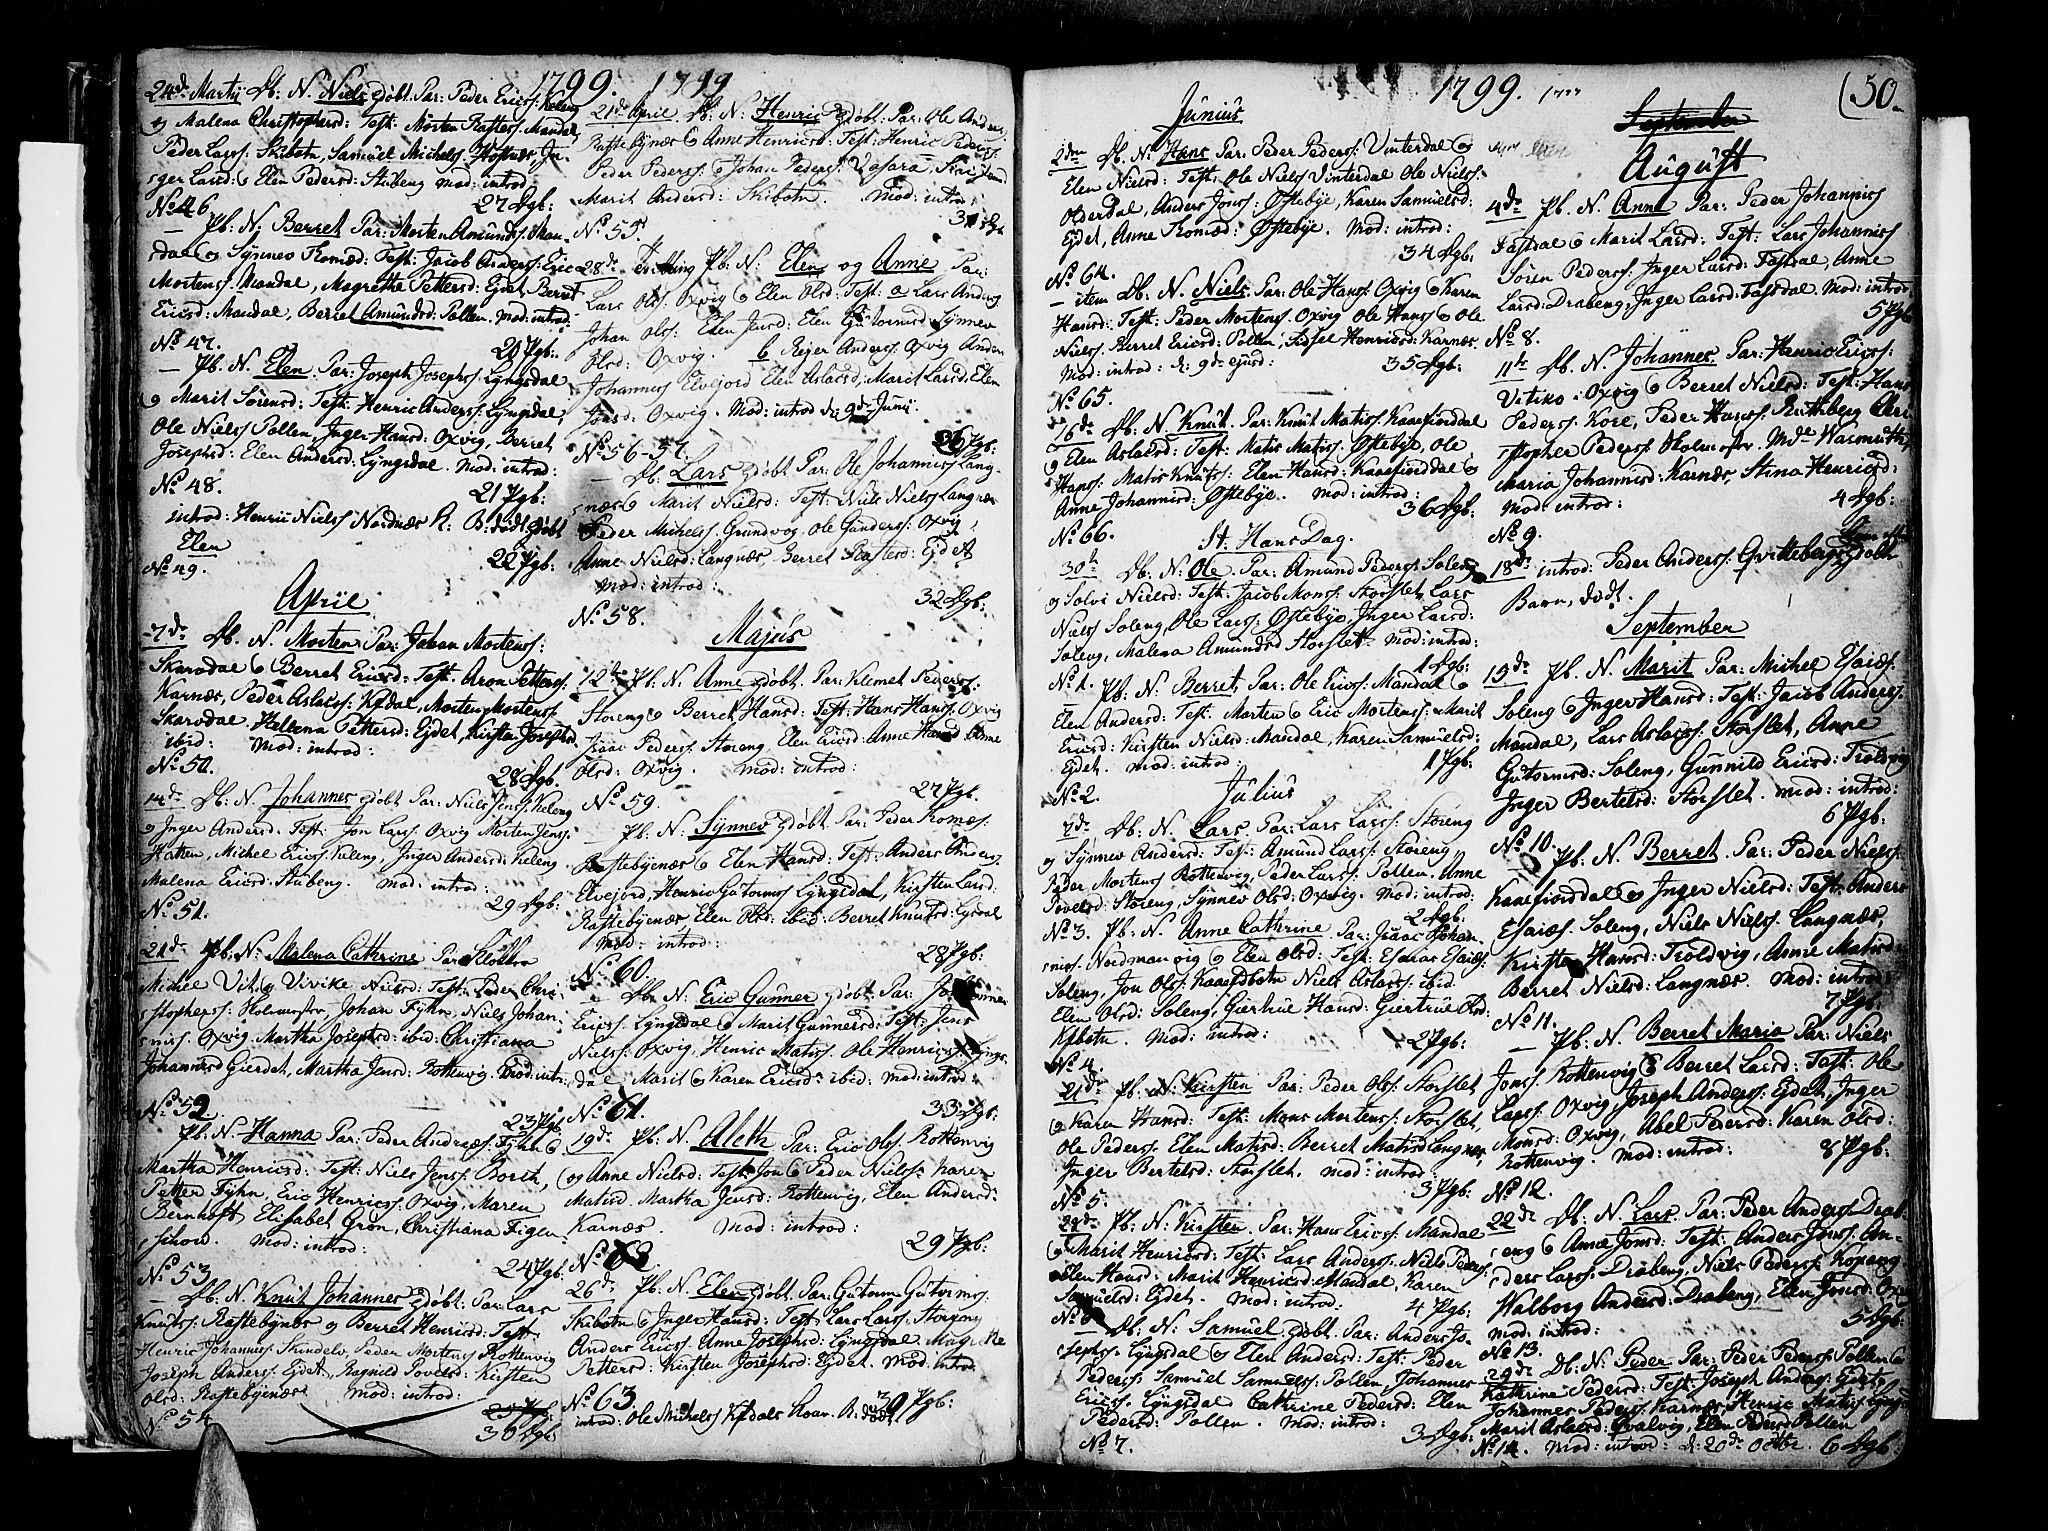 1799. 1799
24de Martij Db: N. Niels Døbt. Par: Peder Erics: Keleng
og Malena Christophersd: Test: Morten Rasterss: Mandal
Peder Larss: Skibotn, Samuel Michels:
ger Larsd: & Elen Pedersd: Stubeng mod: introd:
No 46. 27 Dgb:
— Pb: N. Berret Par: Morten Amunds: Man-
dal & Synnev Tomæd: Test: Jacob Anderss: Eric
Mortens: Mandal, Magrethe Pettersd: Ejdet, Berret
Ericsd: Mandal, Berret Amundsd: Pollen. mod: introd:
No 47. 20 Pgb:
— Pb. N. Elen. Par: Joseph Josephss: Lyngsdal
& Marit Sørensd: Test: Henric Anderss: Lyngsdal,
Ole Niels: Pollen, Inger Hansd: Oxvig, Berret
Josephsd: Elen Andersd: Lyngsdal. mod: introd:
No 48. 21 Pgb:
introd: Henric Niels: Nordnæs K: B: død døbt
Elen
No 49. 22 Pgb:
April
7de Db. N. Morten Par: Johan Mortens:
Skarvdal & Berret Ericsd: Test. Aron Petters:
Karnæs, Peder Aslacs: Kfdal, Morten Mortens:
Skarvdal, Hellena Pettersd: Ejdet, Kirsten Josephsd
ibid: Mod: introd:
No 50. 28 Dgb.
14de Db. N. Johannes Døbt. Par: Niels Jens: Keleng
& Inger Andersd: Test: Jon Larss: Oxvig Morten Jens:
Hatten, Michel Erics: Keleng, Inger Andersd: Keleng
Malena Ericsd: Stubeng. Mod: introd:
No 51. 29 Dgb:
21de Pb: N: Malena Cathrine Par:
Michel Vit: & Vivike Nilsd: Test: Peder Chri-
stophers: Holmestr, Johan Fyhn, Niels Johan-
niss: Oxvig. Martha Josephsd: ibid: Christiana
Johannisd Gierdet, Martha Jensd: Rottenvig. Mod: intr:
No 52 23 Pgb
Pb: N. Hanna Par: Peder Andreas: Fyhn &
Martha Henricsd: Test: Niels Jens: Borch,
Petter Fyhn, Eric Henricss: Oxvig, Maren
Bernhoft, Elisabet Grøn, Christiana Figen
schow. Mod: introd:
No 53 24 Pgb:
— Db: N. Knut Johannes Døbt: Par: Lars
Knutss: Rastebynæs & Berret Henricsd: Test.
Henric Johannis: Skindelv, Peder Mortens: Rottenvig
Joseph Anders: Ejdet, Ragnild Povelsd: Kirsten
Olsd: Rastebynæs. Mod: introd:
No 54 30 Dgb:
21de April Db: N: Henric Døbt. Par: Ole Anders:
Rastebynæs & Anne Henricsd: Test: Henric Peders:
Peder Peders: & Johan Peders:
Marit Andersd: Skibotn. Mod: introd:
No 55. 31 Dgb
28de Pb: N: Elen og Anne Par:
Lars Ols: Oxvig & Elen Olsd: Test: a Lars Anders
Johan Ols: Elen Jensd: Elen Guttormsd Synnev
Olsd: Oxvig. b Rejer Anders: Oxvig Anders
Johannis: Elvejord Elen Aslacsd: Marit Larsd: Elen
Jonsd: Oxvig. Mod: introd: d: 9de Junij.
No 56-57. 26 Pgb:
— Db: Lars Døbt Par: Ole Johannis: Lang-
næs & Marit Nielsd: Test: Niels Niels: Langnæs
Peder Michels: Grundvog, Ole Gunders: Oxvig,
Anne Nielsd: Langnæs, Berret Rastersd: Ejdet
Mod: introd:
No 58. 32 Dgb:
Majus
12te Pb: N. Anne Døbt. Par: Klemet Peders:
Storeng & Berret Hansd: Test: Hans Hans: Oxvig
Isaac Peders: Storeng, Elen Ericsd: Anne Hansd: Anne
Olsd: Oxvig. Mod: introd:
No 59. 27 Pgb.
Pb: N: Synnev Døbt. Par: Peder Tomæs:
Rastebyenæs & Elen Hansd: Test: Anders Anders:
Elvejord, Henric Guttorms: Lyngsdal, Kirsten Larsd:
Rastebyenæs Elen Olsd: ibid: Berret Knutsd: Lyngsdal
Mod: introd:
No 60. 28 Pgb:
— Db: N: Eric Gunner Døbt Par:
Ericss: Lyngsdal & Marit Gunnersd: Test: Jens
Niels: Oxvig, Henric Matiss: Ole Henrics: Lyngs-
dal Marit & Karen Ericsd: ibid: Mod: introd:
No 61. 33 Dgb:
19de Pb. N. Aleth. Par: Eric Ols: Rottenvig
& Anne Nielsd: Test: Jon & Peder Niels: Karen
Matisd Martha Jensd: Rottenvig, Elen Andersd:
Karnæs. Mod: introd:
No 62 29 Pgb:
26de Pb. N: Elen Døbt. Par: Guttorm Guttorms:
Skibotn & Inger Hansd: Test: Lars Lars: Storeng
Anders Erics: Anne Josephsd: Lyngsdal Magrethe
Pettersd: Kirsten Josephsd: Ejdet. Mod: introd:
No 63. 30 Pgb:
introd: Ole Michels: Kfdals Kone B: død
1799. (50.
Junius
2den Db. N: Hans Par: Peder Peders: Vinterdal &
Elen Nielsd: Test: Ole Niels: Vinterdal Ole Niels:
Olderdal, Anders Jons: Østebye, Karen Samuelsd:
Ejdet, Anne Tomæd: Østebye. Mod: introd:
No 64. 34 Dgb:
— item Db: N. Niels Par: Ole Hans: Oxvig & Karen
Hansd: Test: Peder Mortens: Oxvig Ole Hans: & Ole
Niels: Berret Ericsd: Pollen, Sidsel Henricsd: Karnæs.
Mod: introd: d: 9de ejusd: 35 Dgb:
No 65.
16de Db: N. Knut. Par: Knut Matiss: Kaaefiorddal
& Elen Aslacsd: Test: Matis Matiss: Østebye, Ole
Hans: Matis Knuts: Elen Hansd: Kaaefiorddal &
Anne Johannisd: Østebye. Mod: introd:
No 66. 36 Dgb:
St. Hans Dag.
30te Db: N: Ole Par: Amund Peders: Soleng
& Solvi Nielsd: Test: Jacob Mons: Storslet, Lars
Niels: Soleng, Ole Lars: Østebye Inger Larsd:
Soleng, Malena Amundsd Storslet. Mod: introd:
No 1. 1 Dgb:
— Pb: N: Berret Par: Ole Erics: Mandal &
Elen Andersd: Test: Morten & Eric Mortens: Marit
Ericsd: Kirsten Nielsd: Mandal, Karen Samuelsd:
Ejdet. Mod: introd: 1 Pgb:
No 2.
Julius
7de Db: N. Lars Par: Lars Lars: Storeng
& Synnev Andersd: Test: Amund Lars: Storeng,
Peder Mortens: Rottenvig, Peder Lars: Pollen. Anne
Povelsd: Storeng, Synnev Olsd: Oxvig. Mod: introd:
2 Dgb:
No 3. Pb: N. Anne Cathrine. Par: Isaac Johan-
niss: Nordmanvig & Elen Olsd: Test: Esaias Esaiæs:
Soleng, Jon Ols: Kaaefdbotn Niels Aslacs: ibid:
Elen Olsd: Soleng, Giertrue Hansd: Giertrue Olsd:
Kfbotn. Mod: introd: 2 Pgb:
No 4.
21de Pb: N: Kirsten Par: Peder Ols: Storslet
& Karen Hansd: Test: Mons Mortens: Storslet,
Ole Peders: Elen Matisd: Berret Matisd Langnæs,
Inger Bertelsd: Storslet. Mod: introd:
No 5. 3 Pgb:
28de Pb: N: Kirsten Par: Hans Erics: Mandal
& Marit Henricsd: Test: Lars Anders: Niels Peders:
Elen Hansd: Marit Henricsd: Mandal, Karen
Samuelsd: Ejdet. Mod: introd:
No 6 4 Pgb:
Db: N: Samuel Døbt. Par: Anders Jo-
sephs: Lyngsdal & Elen Andersd: Test: Peder
Peders: Samuel Samuels: Pollen, Johannes
Erics: Lyngsdal Cathrine Pedersd: Elen
Pedersd: Pollen. Mod: introd:
No 7. 3 Dgb:
September
August
4de Pb. N. Anna Par: Peder Johannis:
Fastdal & Marit Larsd: Test: Lars Johannis:
Søren Peders: Inger Larsd: Fastdal, Anne
Larsd: Drabeng, Inger Larsd: Fastdal. Mod: introd:
5 Pgb
No 8.
11te Db. N. Johannes Par: Henric Erics:
Vitiko i Oxvig & Berret Nielsd: Test: Hans
Peders: Kore, Peder Hans: Ruthberg Chri-
stopher Peders: Holmestr. Mde Wasmuth,
Maria Johannisd: Karnæs, Stina Henricsd:
Mod: introd: 4 Dgb:
No 9.
18de introd: Peder Anders: Qvittebergs død
Barn, dødt.
September
15de Pb. N. Marit Par: Michel Esaiæs:
Soleng & Inger Hansd: Test: Jacob Anders:
Mandal, Lars Aslacs: Storslet, Anne
Guttormsd: Soleng, Gunnild Ericsd: Trolvig
Inger Bertelsd: Storslet. Mod: introd:
No 10. 6 Pgb:
Pb. N. Berret Par: Peder Niels:
Kaaefiorddal & Inger Nielsd: Test: Anders
Esaiæs: Soleng, Niels Niels: Langnæs,
Kirsten Hansd: Trolvig, Anne Matisd:
Berret Nielsd: Langnæs. Mod: introd:
No 11. 7 Pgb:
— Pb. N: Berret Maria Par: Niels
Jons: Rottenvig & Berret Larsd: Test: Ole
Lars: Oxvig, Joseph Anders: Ejdet, Inger
Monsd: Oxvig, Abel Pedersd: Karen Olsd:
Rottenvig. Mod: introd: 8 Pgb:
No 12.
22de Db: N. Lars Par: Peder Anders: Drab-
eng & Anne Jonsd: Test: Anders Jons: An-
ders Lars: Drabeng, Niels Peders: Kopang
Walborg Andersd: Drabeng, Elen Jonsd: Oxvig
Mod: introd: 5 Dgb:
No 13.
29de Db: N: Peder Par: Peder Peders: Pollen &
Kathrine Pedersd: Test: Joseph Anders: Ejdet,
Johannes Peders: Karnæs, Henric Matiss: Lyngsdal
Marit Aslacsd: Qvalvig, Elen Pedersd: Pollen
No 14. Mod: introd: d: 20de Octbr. 6 Dgb: